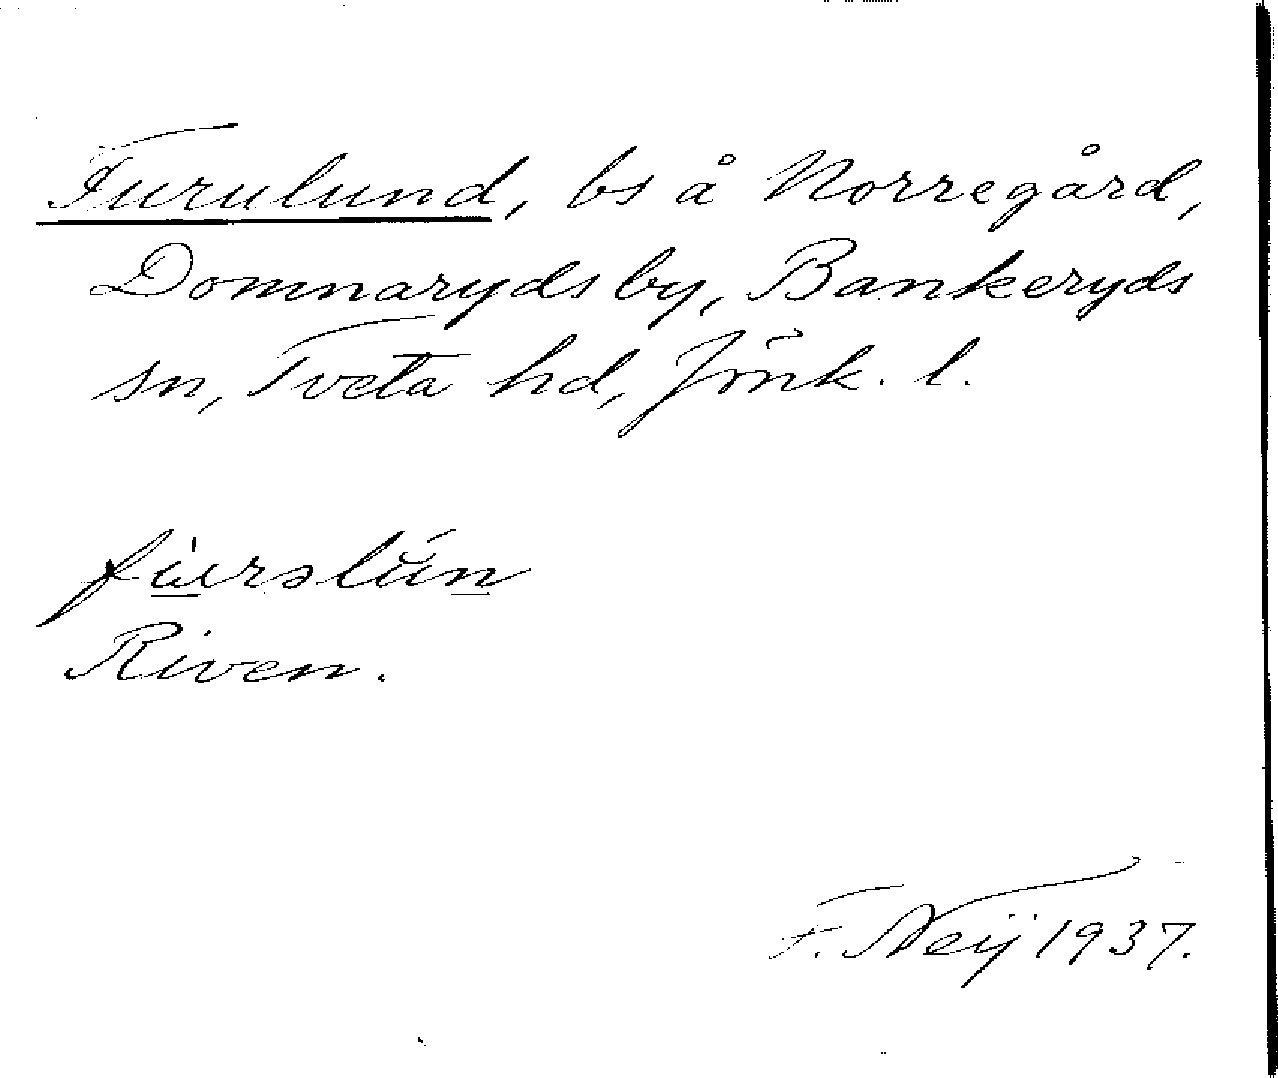 Furulund, bs å Norregård,
Domnaryds by, Bankeryds
sn, Tveta hd, Jönk. l.
Riven.
F. Neij 1937.